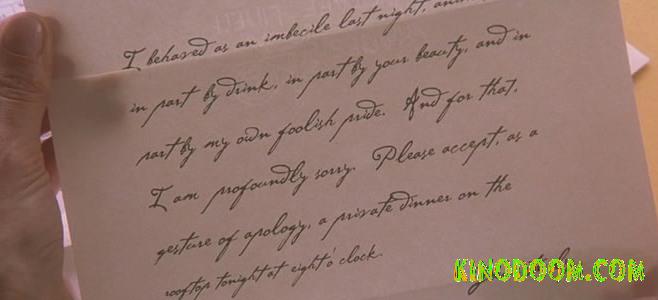 I behaved as an imbecile last night,
in part by drink, in part by your beauty, and in
part by my own foolish pride. And for that,
I am profoundly sorry. Please accept, as a
gesture of apology, a private dinner on the
rooftop tonight at eight o' clock.
KINODOOM.COM